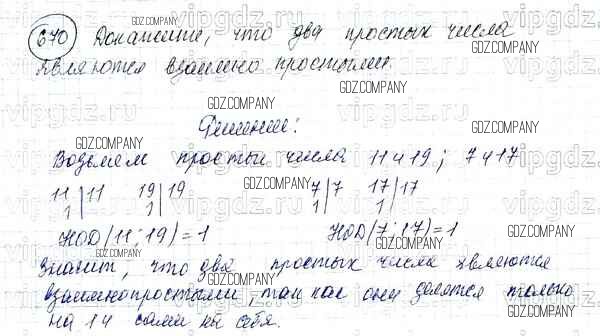 670 Докажите, что два простых числа
являются взаимно простыми.
Решение:
Возьмем простые числа 11 и 19; 7 и 17
11|11 19|19 7|7 17|17
1| 1| 1| 1|
НОД(11;19)=1 НОД(7;17)=1
Значит, что два простых числа являются
взаимнопростыми, так как они делятся только
на 1 и сами на себя.
GDZ.COMPANY
vipgdz.ru